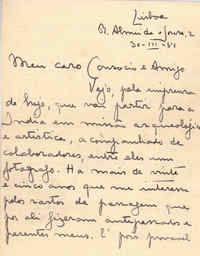 Lisboa
R. Almeida e Sousa, 2
30-III-51
Meu caro Consocio e Amigo
Vejo, pela imprensa
de hoje, que vai partir para a
India em missão arqueologica
e artistica, acompanhado de
colaboradores, entre eles um
fotografo. Ha mais de vinte
e cinco anos que me interesso
pelos rastos de passagem que
por ali fizeram antepassados e
parentes meus. E' pois provavel